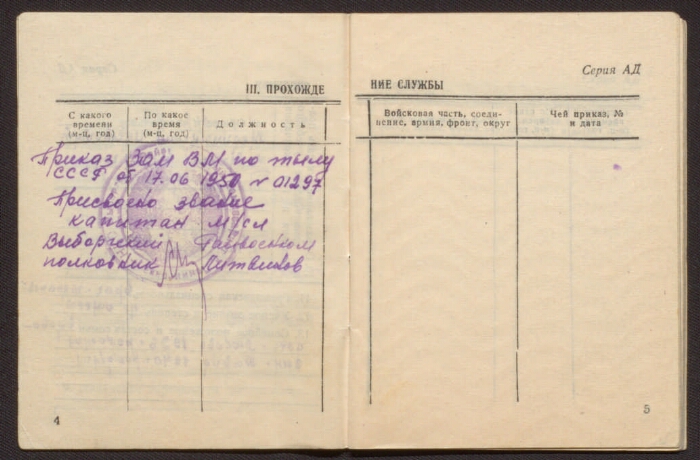 III. ПРОХОЖДЕ
С какого времени (м-ц, год)
По какое время (м-ц, год)
Должность
Приказ Зам ВМ по тылу
СССР от 17.06 1950 № 01297
Присвоено звание
капитан м/сл
Выборгский Райвоенком
полковник
4
Серия АД
НИЕ СЛУЖБЫ
Войсковая часть, соеди-
нение, армия, фронт, округ
Чей приказ, №
и дата
5